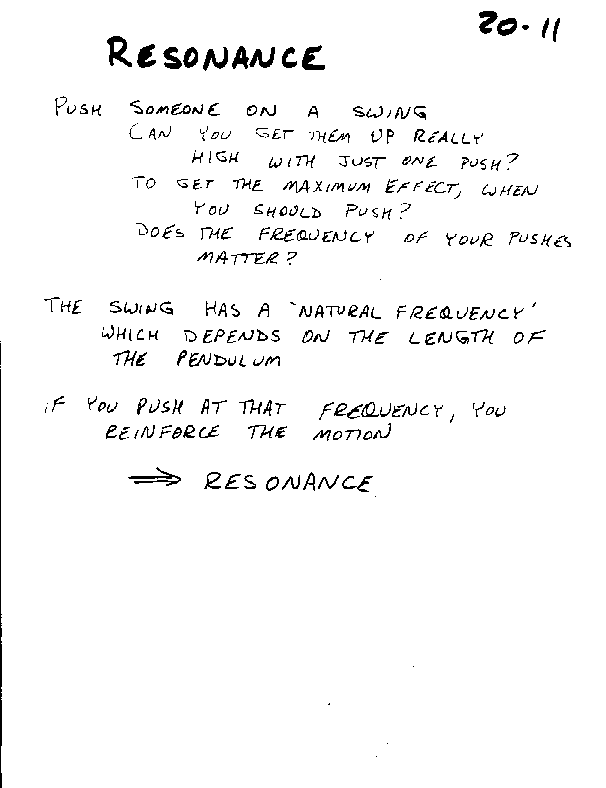 20-11
RESONANCE
PUSH SOMEONE ON A SWING
CAN YOU GET THEM UP REALLY
HIGH WITH JUST ONE PUSH?
TO GET THE MAXIMUM EFFECT, WHEN
YOU SHOULD PUSH?
DOES THE FREQUENCY OF YOUR PUSHES
MATTER?
THE SWING HAS A 'NATURAL FREQUENCY'
WHICH DEPENDS ON THE LENGTH OF
THE PENDULUM
IF YOU PUSH AT THAT FREQUENCY, YOU
REINFORCE THE MOTION
⟹ RESONANCE